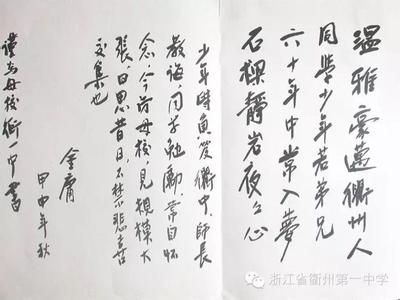 温雅豪邁衢州人
同學少年若弟兄
六十年中常入夢
石樑靜岩夜夜心
少年時負笈衢中，師長
教誨，同學勉勵，常自怀
念，今访母校，見規模大
張，日思昔日不禁悲喜
交集也
金庸
甲申年秋
謹为母校衢一中書
浙江省衢州第一中学